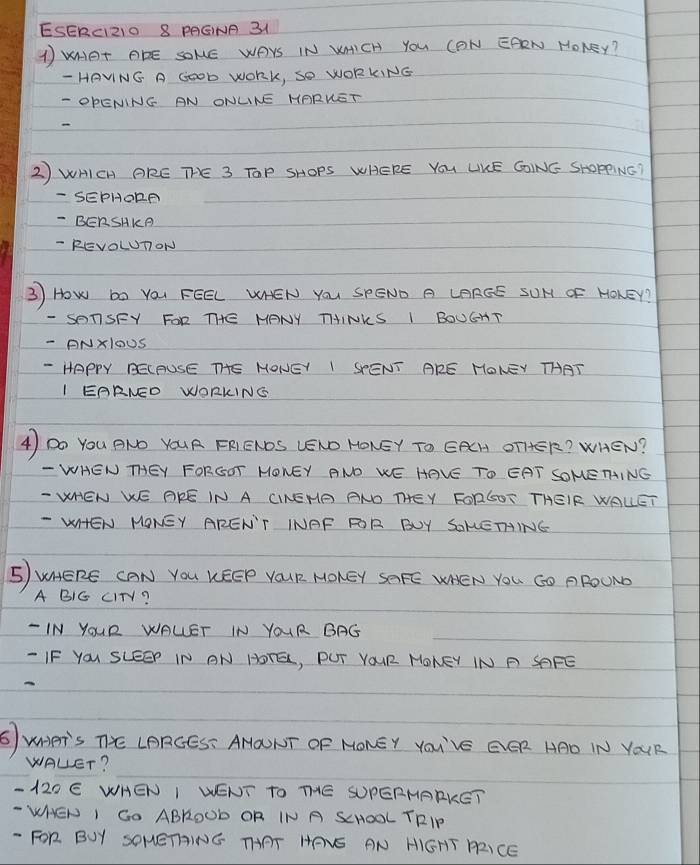 ESERCIZIO 8 PAGINA 31
1) WHAT ARE SOME WAYS IN WHICH YOU CAN EARN MONEY?
- HAVING A GOOD WORK, SO WORKING
- OPENING AN ONLINE MARKET
-
2) WHICH ARE THE 3 TOP SHOPS WHERE YOU LIKE GOING SHOPPING?
- SEPHORA
- BERSHKA
- REVOLUTION
3) HOW DO YOU FEEL WHEN YOU SPEND A LARGE SUM OF MONEY?
- SATISFY FOR THE MANY THINKS I BOUGHT
- ANXIOUS
- HAPPY BECAUSE THE MONEY I SPENT ARE MONEY THAT
I EARNED WORKING
4) DO YOU AND YOUR FRIENDS LEND MONEY TO EACH OTHER? WHEN?
- WHEN THEY FORGOT MONEY AND WE HAVE TO EAT SOMETHING
- WHEN WE ARE IN A CINEMA AND THEY FORGOT THEIR WALLET
- WHEN MONEY AREN'T INAF FOR BUY SOMETHING
5) WHERE CAN YOU KEEP YOUR MONEY SAFE WHEN YOU GO AROUND
A BIG CITY?
- IN YOUR WALLET IN YOUR BAG
- IF YOU SLEEP IN AN HOTEL, PUT YOUR MONEY IN A SAFE
-
6) WHAT'S THE LARGEST AMOUNT OF MONEY YOU'VE EVER HAD IN YOUR
WALLET?
- 120 € WHEN I WENT TO THE SUPERMARKET
- WHEN I GO ABROUD OR IN A SCHOOL TRIP
- FOR BUY SOMETHING THAT HAVE AN HIGHT PRICE